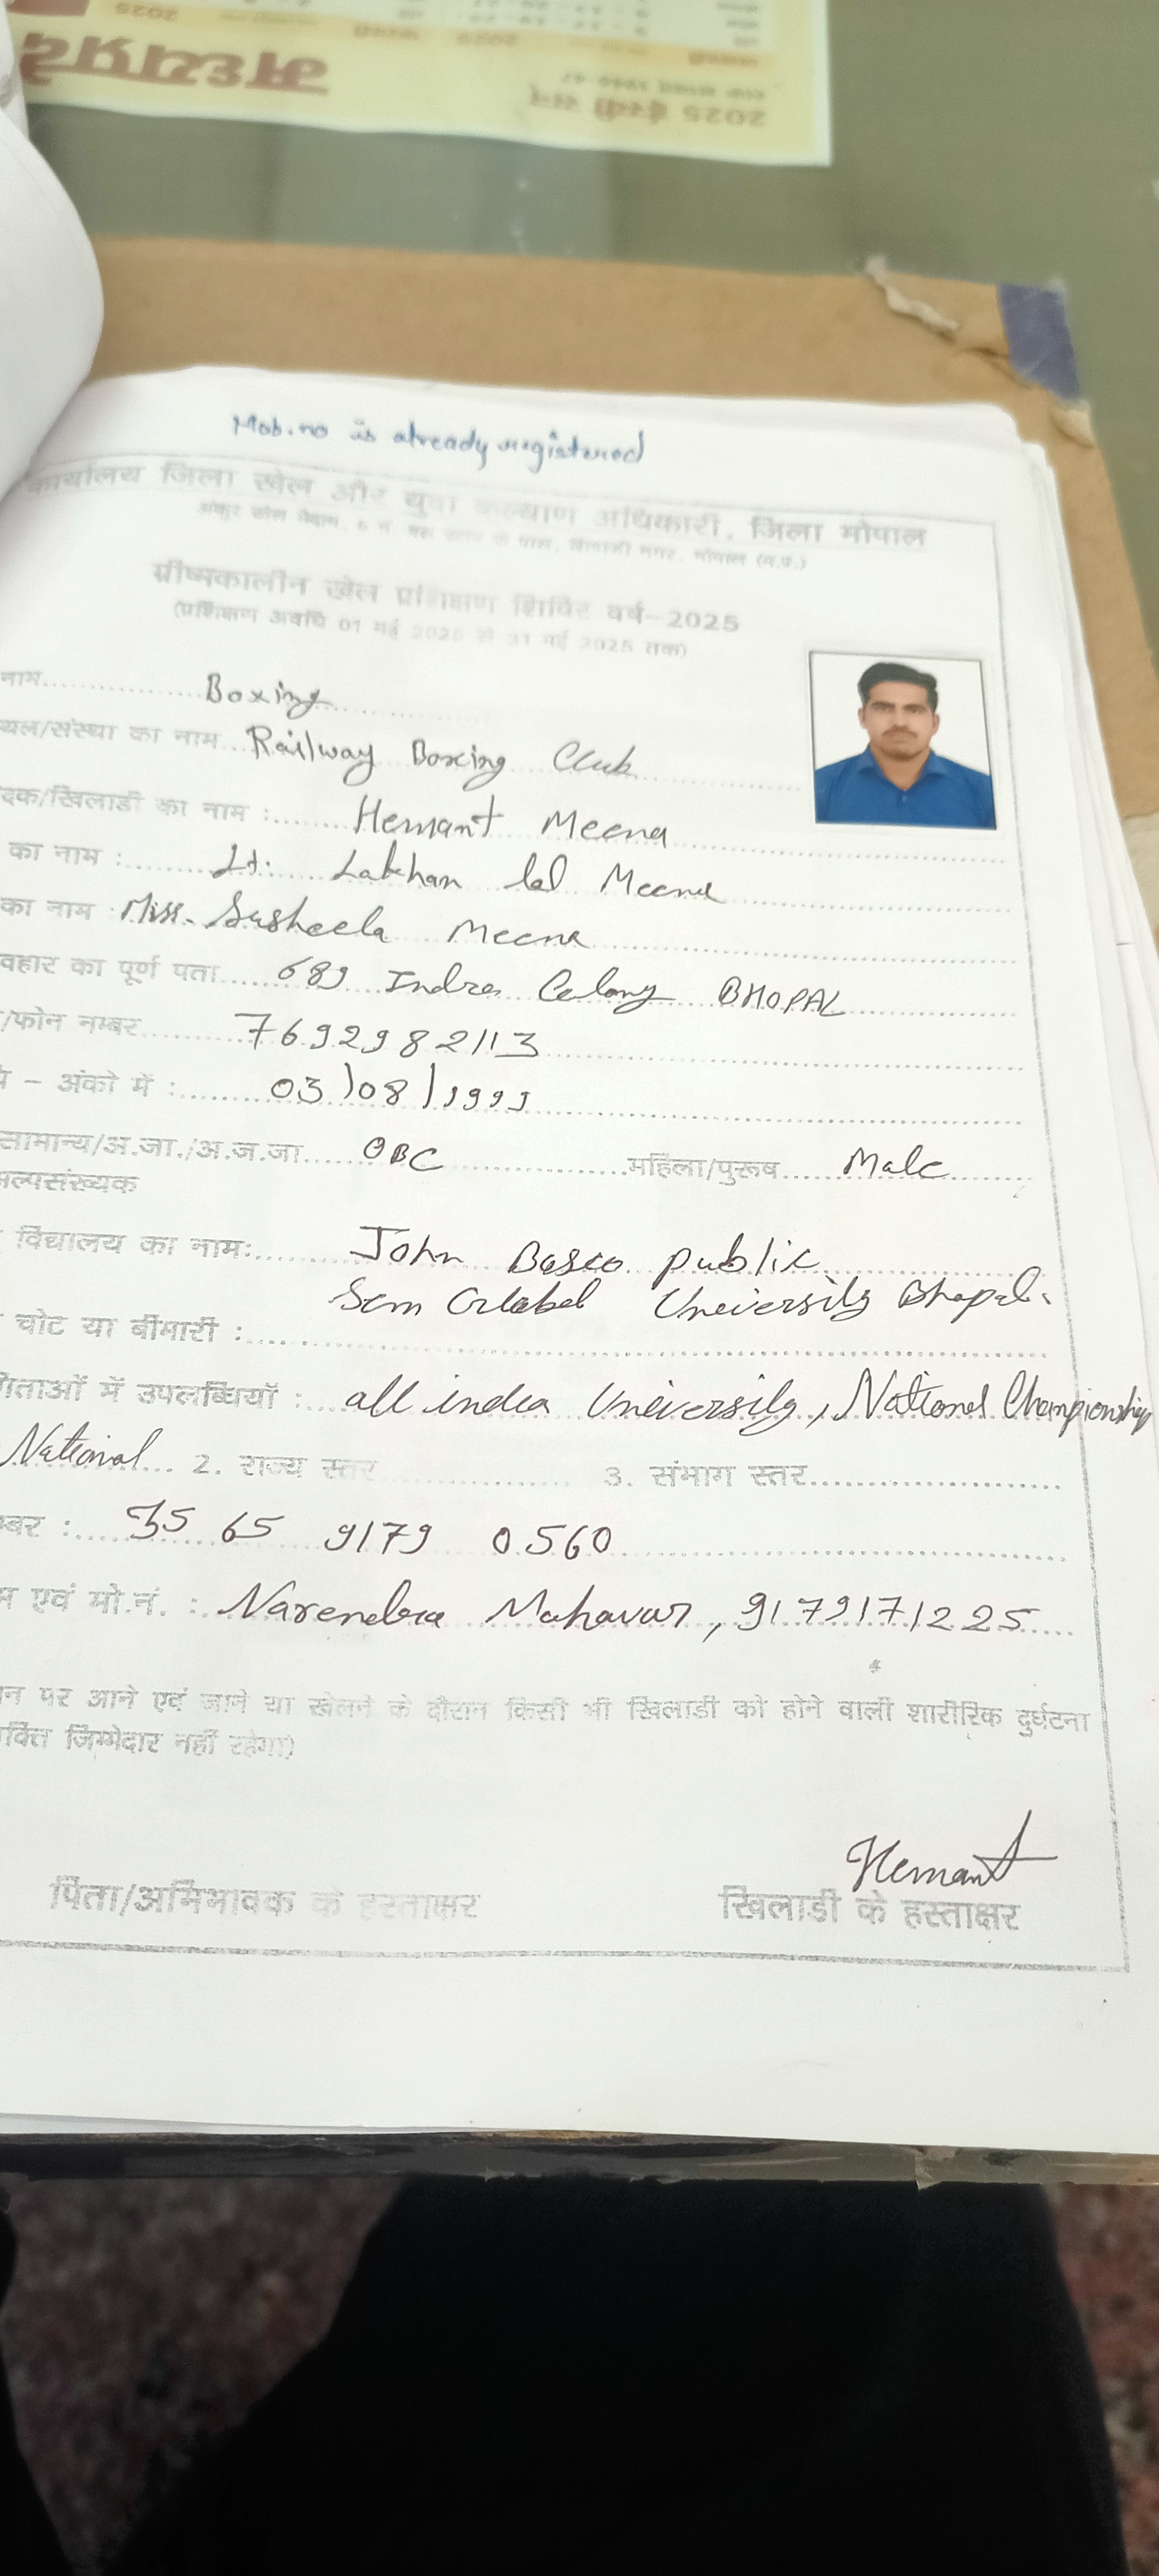 2025 ईस्वी सन्
मध्यप्रदेश
Mob. no is already registered
कार्यालय जिला खेल और युवा कल्याण अधिकारी, जिला भोपाल
ग्रीष्मकालीन खेल प्रशिक्षण शिविर वर्ष–2025
(प्रशिक्षण अवधि 01 मई 2025 से 31 मई 2025 तक)
नाम Boxing
स्थल/संस्था का नाम Railway Boxing Club
दक/खिलाडी का नाम : Hemant Meena
का नाम : Lt. Lakhan lal Meena
का नाम Miss. Susheela Meena
वहार का पूर्ण पता 689 Indra Colony BHOPAL
/फोन नम्बर 7692982113
– अंको में : 03/08/1999
सामान्य/अ.जा./अ.ज.जा OBC महिला/पुरूष Male
ल्पसंख्यक
विद्यालय का नामः John Bosco public
University Bhopal.
चोट या बीमारी :
गिताओं में उपलब्धियॉ : all india University, National Championship
National 2. राज्य स्तर 3. संभाग स्तर
म्बर : 3565 9179 0560
म एवं मो.नं. : Narendra Mahavar, 9179171225
न पर आने एवं जाने या खेलने के दौरान किसी भी खिलाडी को होने वाली शारीरिक दुर्घटना
क्ति जिम्मेदार नहीं रहेगा)
Hemant
पिता/अभिभावक के हस्ताक्षर खिलाडी के हस्ताक्षर